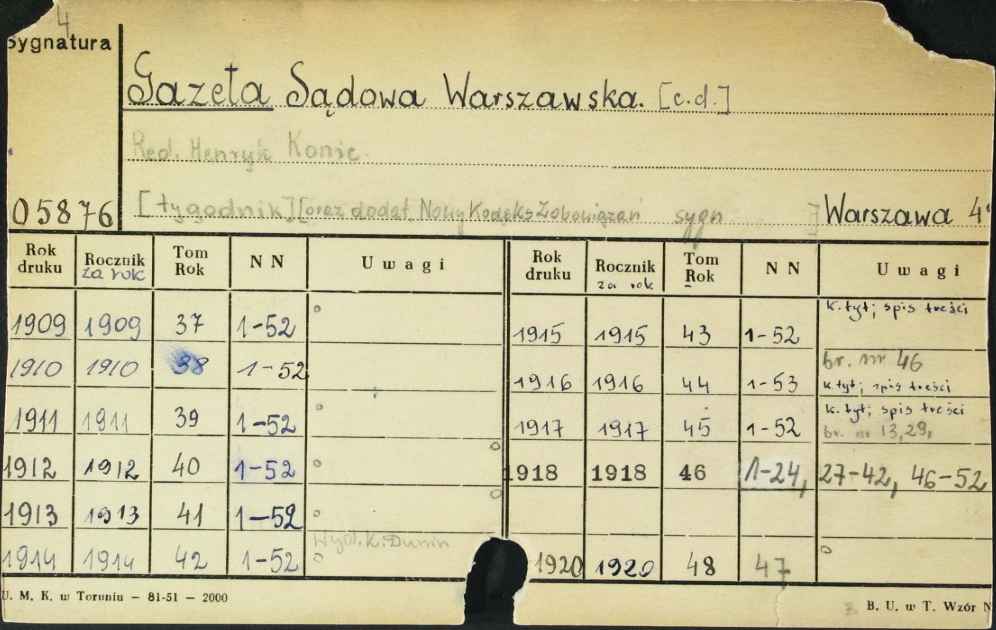 4
Sygnatura
Gazeta Sądowa Warszawska. [c.d.]
Red. Henryk Konic.
05876 [tygodnik] [oraz dodat. Nowy Kodeks Zobowiązań sygn ] Warszawa 4°
Rok druku Rocznik za rok Tom Rok NN Uwagi Rok druku Rocznik za rok Tom Rok NN Uwagi
1909 1909 37 1-52 1915 1915 43 1-52 k. tyt; spis treści
1910 1910 38 1-52 1916 1916 44 1-53 br. nr 46 k. tyt; spis treści
1911 1911 39 1-52 1917 1917 45 1-52 k. tyt; spis treści br. nr 13,29,
1912 1912 40 1-52 1918 1918 46 1-24, 27-42, 46-52
1913 1913 41 1-52
1914 1914 42 1-52 Wyd. K. Dunin 1920 1920 48 47
U. M. K. w Toruniu - 81-51 - 2000 B. U. w T. Wzór N